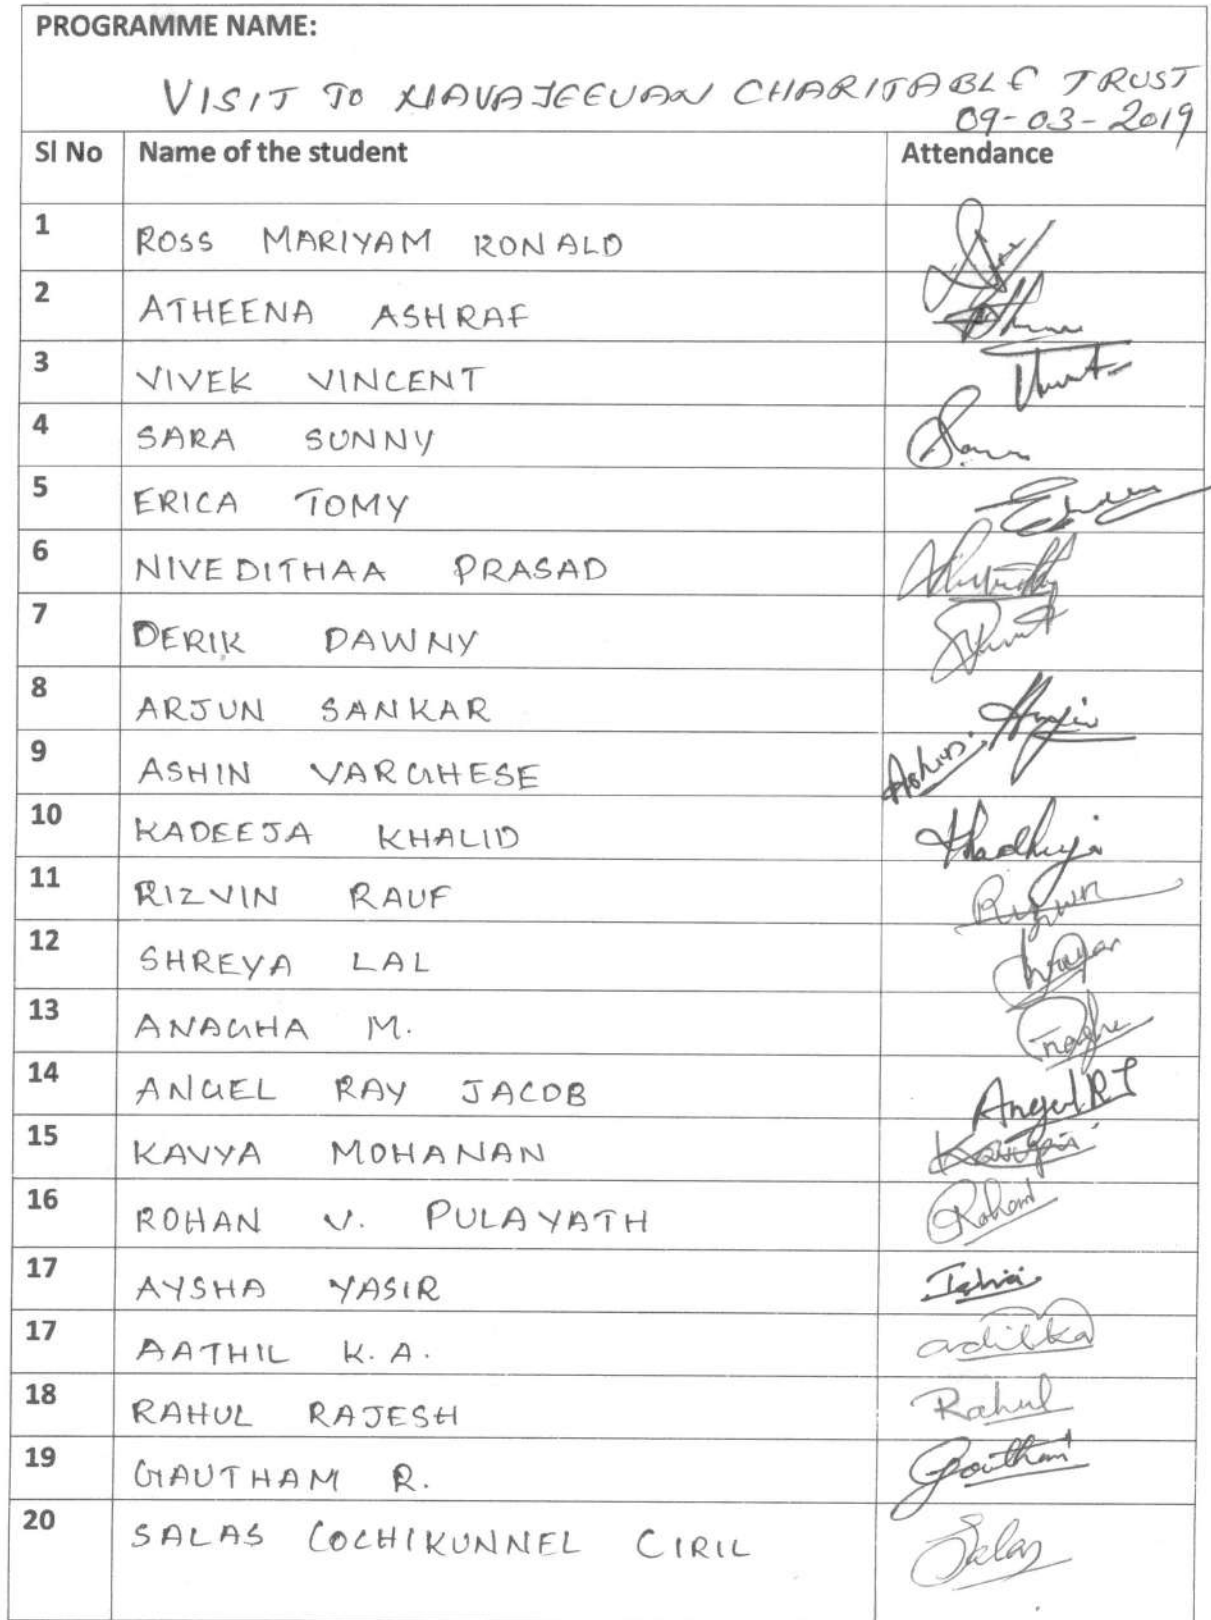 PROGRAMME NAME:
VISIT TO NAVAJEEVAN CHARITABLE TRUST
09-03-2019
Sl No Name of the student Attendance
1 ROSS MARIYAM RONALD
2 ATHEENA ASHRAF
3 VIVEK VINCENT
4 SARA SUNNY
5 ERICA TOMY
6 NIVEDITHAA PRASAD
7 DERIK DAWNY
8 ARJUN SANKAR
9 ASHIN VARGHESE Ashin.
10 KADEEJA KHALID
11 RIZVIN RAUF
12 SHREYA LAL
13 ANAGHA M.
14 ANGEL RAY JACOB Angel RJ
15 KAVYA MOHANAN
16 ROHAN V. PULAYATH Rohan
17 AYSHA YASIR
17 AATHIL K.A.
18 RAHUL RAJESH Rahul
19 GAUTHAM R. Goutham
20 SALAS COCHIKUNNEL CIRIL Salas